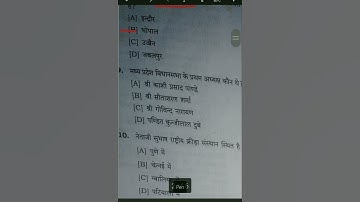 [A] इन्दौर
[B] भोपाल
[C] उज्जैन
[D] जबलपुर
9. मध्य प्रदेश विधानसभा के प्रथम अध्यक्ष कौन थे
[A] श्री काशी प्रसाद पाण्डे
[B] श्री सीताशरण शर्मा
[C] श्री गोविन्द नारायण
[D] पण्डित कुन्जीलाल दुबे
10. नेताजी सुभाष राष्ट्रीय क्रीड़ा संस्थान स्थित है
[A] पुणे में
[B] चेन्नई में
[C] ग्वालियर में
[D] पटियाला में
Pen